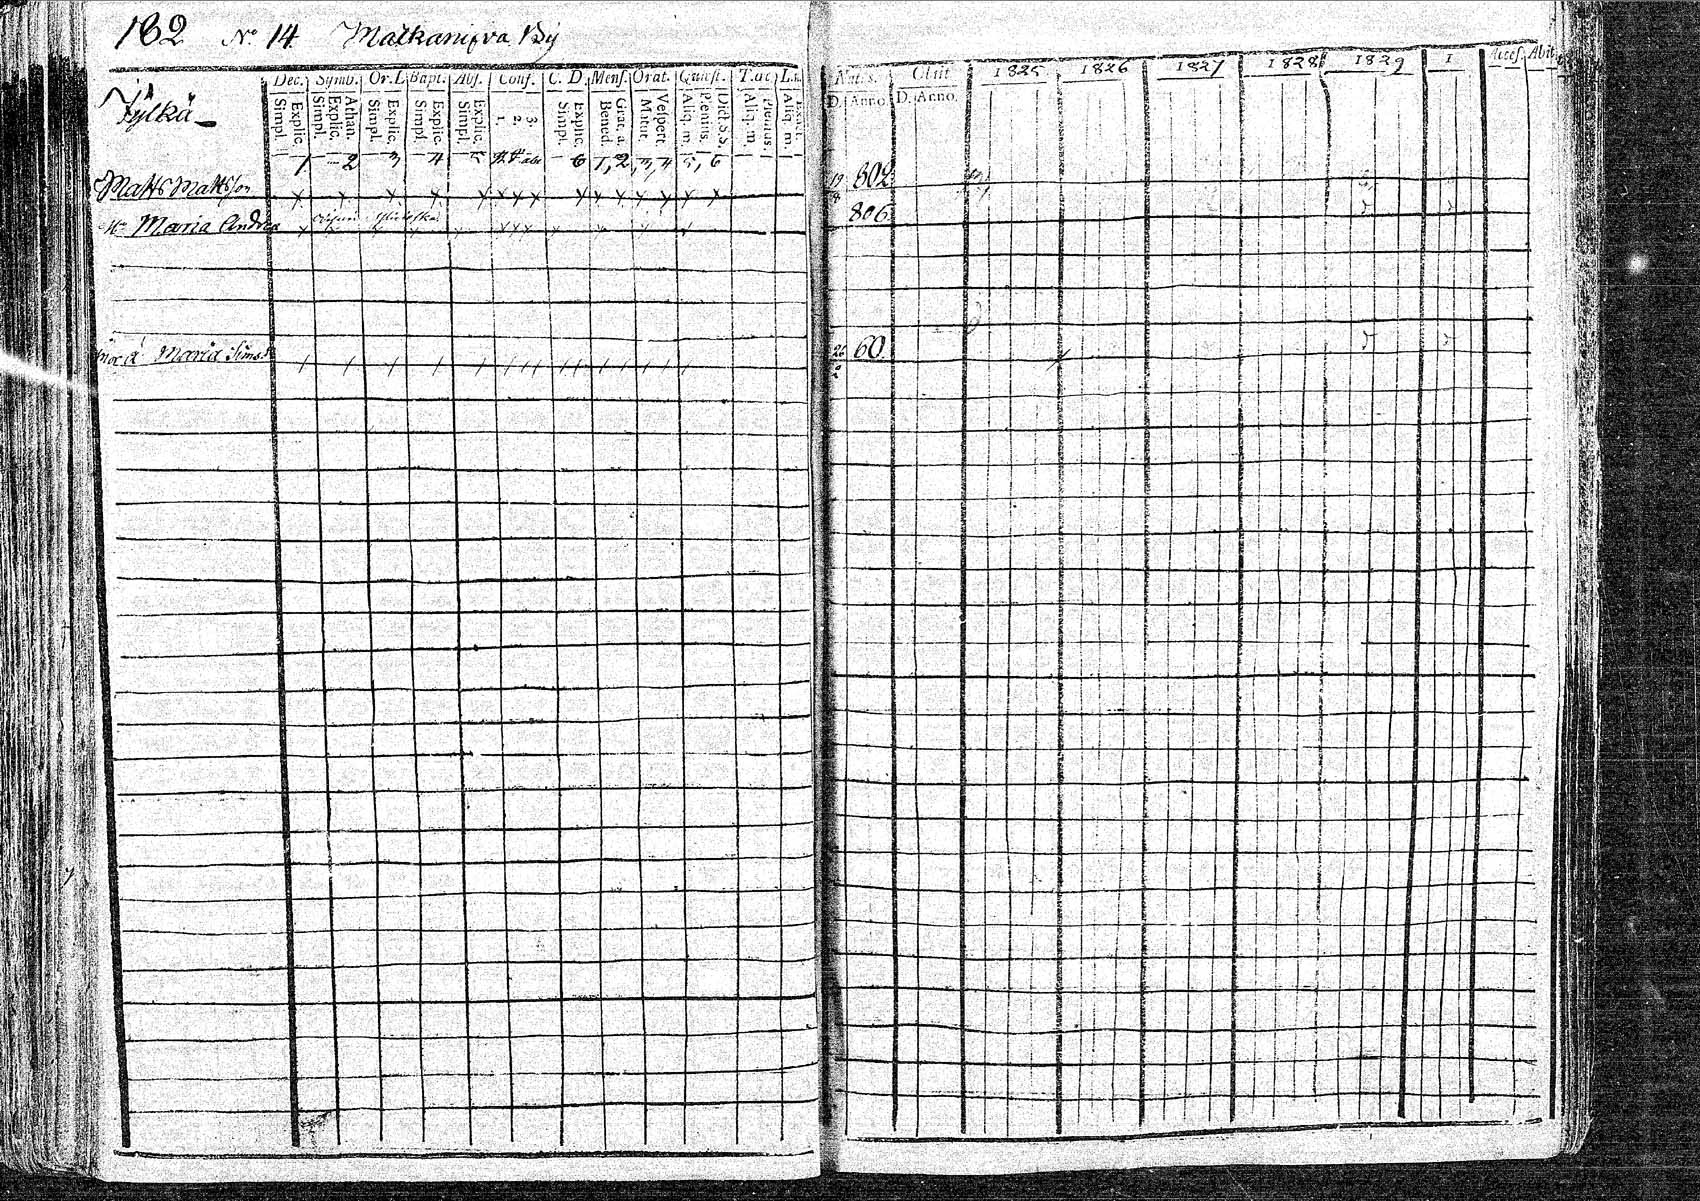 182 No 14 Matkanifva By
Jylkä
Dec. Symb. Or. L. Bapt. Abs. Conf. C. D. Mens. Orat. Quæst. T. ac L.
Simpl. Explic. Simpl. Explic. Athan. Simpl. Explic. Simpl. Explic. Simpl. Explic. 1. 2. 3. Simpl. Explic. Bened. Grat. a. Matut. Vespert. Aliq. m. Plenius. Dict S. S. Aliq. m. Plenius. Aliq. m.
1 2 3 4 5 6 1, 2, 3, 4 5, 6
Matts Mattsson
Hu Maria Andrea
Maria Sims
Nat. s. Obiit 1825 1826 1827 1828 1829 1 Acces. Abit.
D. Anno. D. Anno.
19 8 802
806
26 60